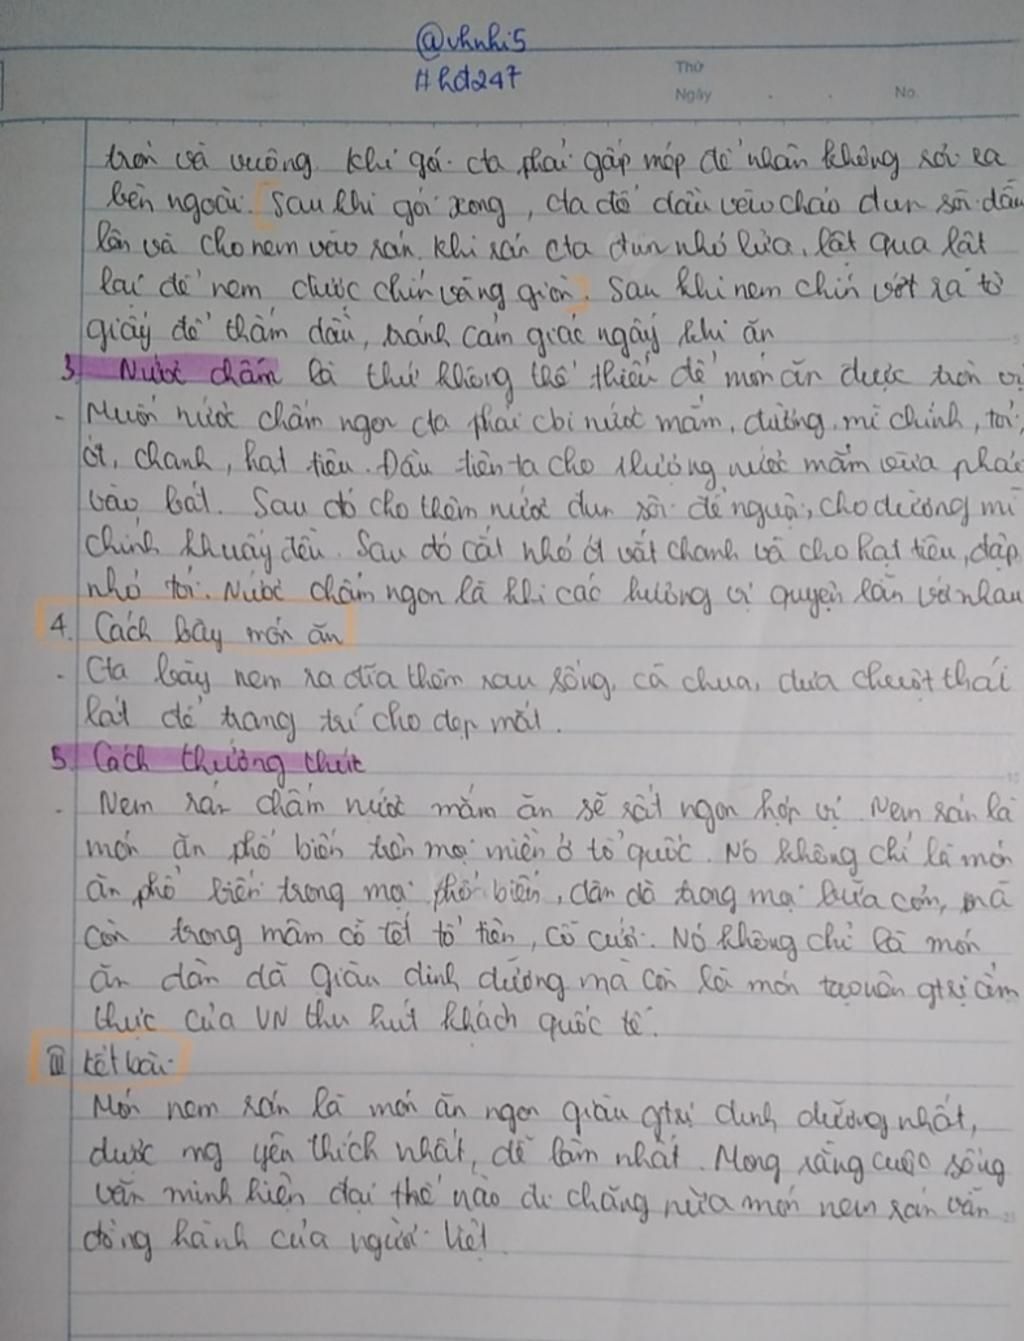 @vhnhi5
#hd247
Thứ
Ngày . . No.
tròn và vuông. Khi gói cta phải gấp mép để nhân không rơi ra
bên ngoài. Sau khi gói xong, cta đổ dầu vào chảo đun sôi dầu
lên và cho nem vào rán. khi rán cta đun nhỏ lửa, lật qua lật
lại để nem được chín vàng giòn. Sau khi nem chín vớt ra tờ
giấy để thấm dầu, tránh cảm giác ngấy khi ăn
3. Nước chấm là thứ không thể thiếu để món ăn được tròn vị
- Muốn nước chấm ngon cta phải cbi nước mắm, đường, mì chính, tỏi,
ớt, chanh, hạt tiêu. Đầu tiên ta cho lượng nước mắm vừa phải
vào bát. Sau đó cho thêm nước đun sôi để nguội, cho đường mì
chính khuấy đều. Sau đó cắt nhỏ ớt vắt chanh và cho hạt tiêu, đập
nhỏ tỏi. Nước chấm ngon là khi các hương vị quyện lẫn với nhau
4. Cách bày món ăn
- Cta bày nem ra đĩa thêm rau sống, cà chua, dưa chuột thái
lát để trang trí cho đẹp mắt.
5. Cách thưởng thức
- Nem rán chấm nước mắm ăn sẽ rất ngon hợp vị. Nem rán là
món ăn phổ biến trên mọi miền ở tổ quốc. Nó không chỉ là món
ăn phổ biến trong mọi phổ biến, dân dã trong mọi bữa cơm, mà
còn trong mâm cỗ tết tổ tiên, cỗ cưới. Nó không chỉ là món
ăn dân dã giàu dinh dưỡng mà còn là món tạo nên gtrị ẩm
thực của VN thu hút khách quốc tế.
III Kết bài
Món nem rán là món ăn ngon giàu gtrị dinh dưỡng nhất,
được mg yêu thích nhất, dễ làm nhất. Mong rằng cuộc sống
văn minh hiện đại thế nào đi chăng nữa món nem rán vẫn
đồng hành của người Việt.